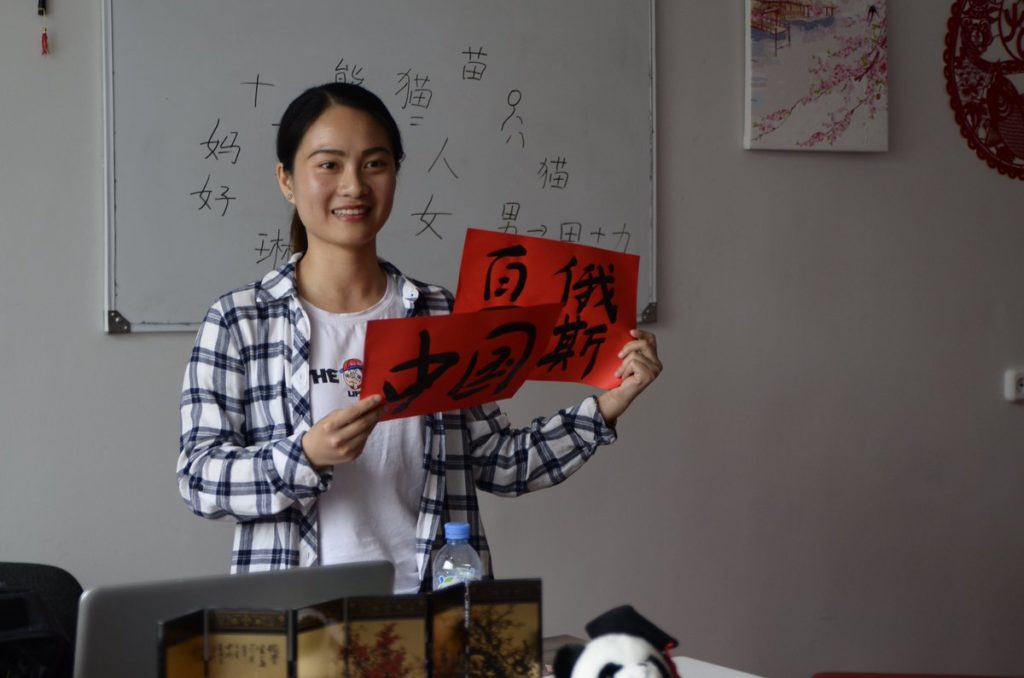 苗
十 熊猫
妈 人 猫
好 女 男→田+力
俄
斯
中国
THE